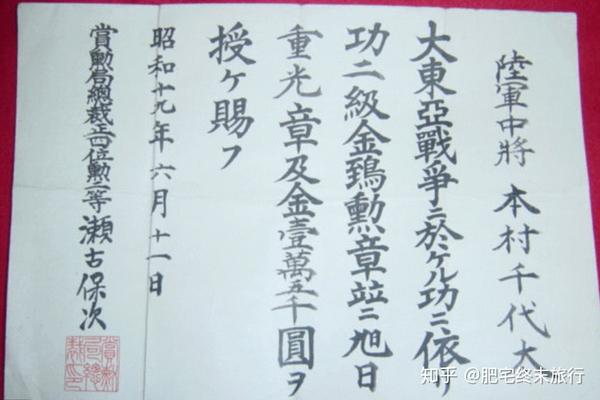 陸軍中將 本村千代太
大東亞戰爭ニ於ケル功ニ依リ
功二級金鵄勲章竝ニ旭日
重光章及金壹萬五千圓ヲ
授ケ賜フ
昭和十九年六月十一日
賞勲局總裁正四位勲二等 瀬古保次
賞勲局總裁印
知乎 @肥宅终末旅行